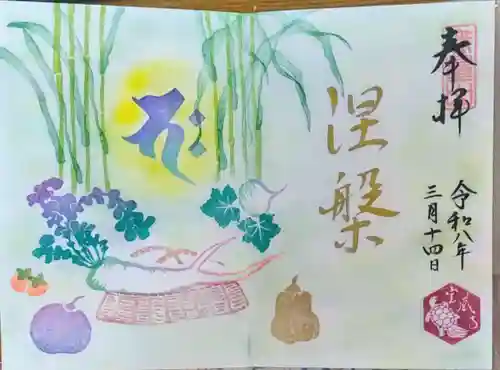 奉拝
涅槃
令和八年
三月十四日
宝蔵寺